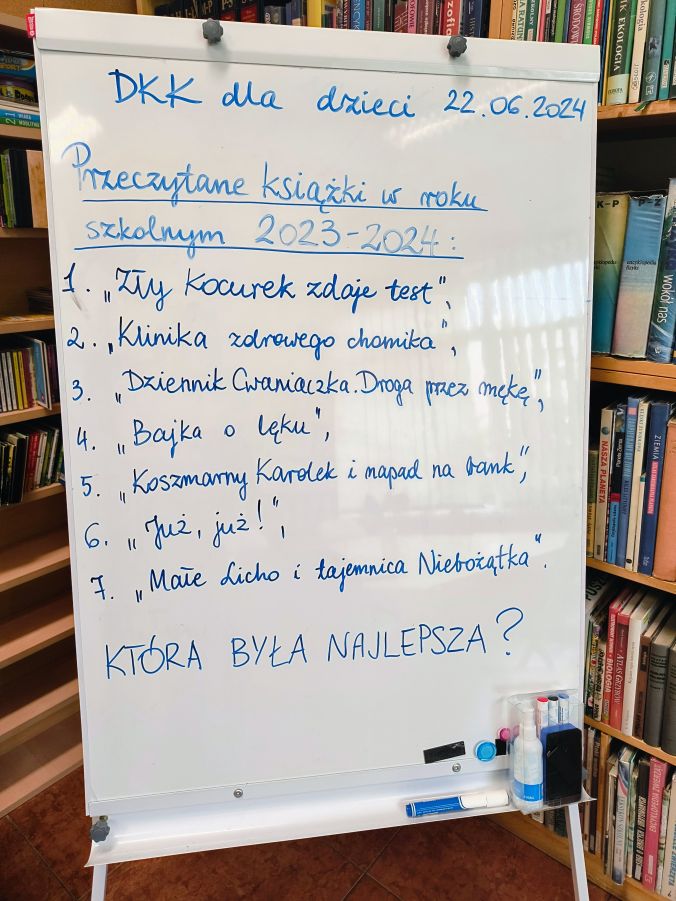 DKK dla dzieci 22.06.2024
Przeczytane książki w roku
szkolnym 2023-2024:
1. „Zły Kocurek zdaje test",
2. „Klinika zdrowego chomika",
3. „Dziennik Cwaniaczka. Droga przez mękę",
4. „Bajka o lęku",
5. „Koszmarny Karolek i napad na bank",
6. „Już, już!",
7. „Małe Licho i tajemnica Niebożątka".
KTÓRA BYŁA NAJLEPSZA?
EKOLOGIA
K-P
P-Z
encyklopedia
fizyki
wokół nas
NASZA PLANETA
ZIEMIA
ATLAS GRZYBÓW
BIOLOGIA